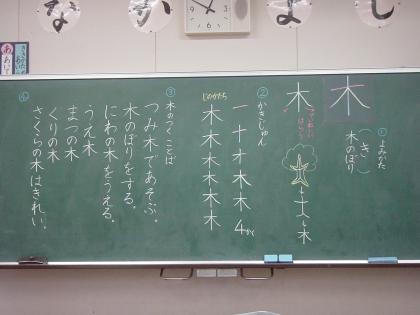 なかよし
木
① よみかた
(き)
木のぼり
木
② かきじゅん
一 十 オ 木 木 4かく
じのかたち
木木木木木木
③ 木のつくことば
つみ木であそぶ。
木のぼりをする。
にわの木をうえる。
うえ木
まつの木
くりの木
さくらの木はきれい。
④